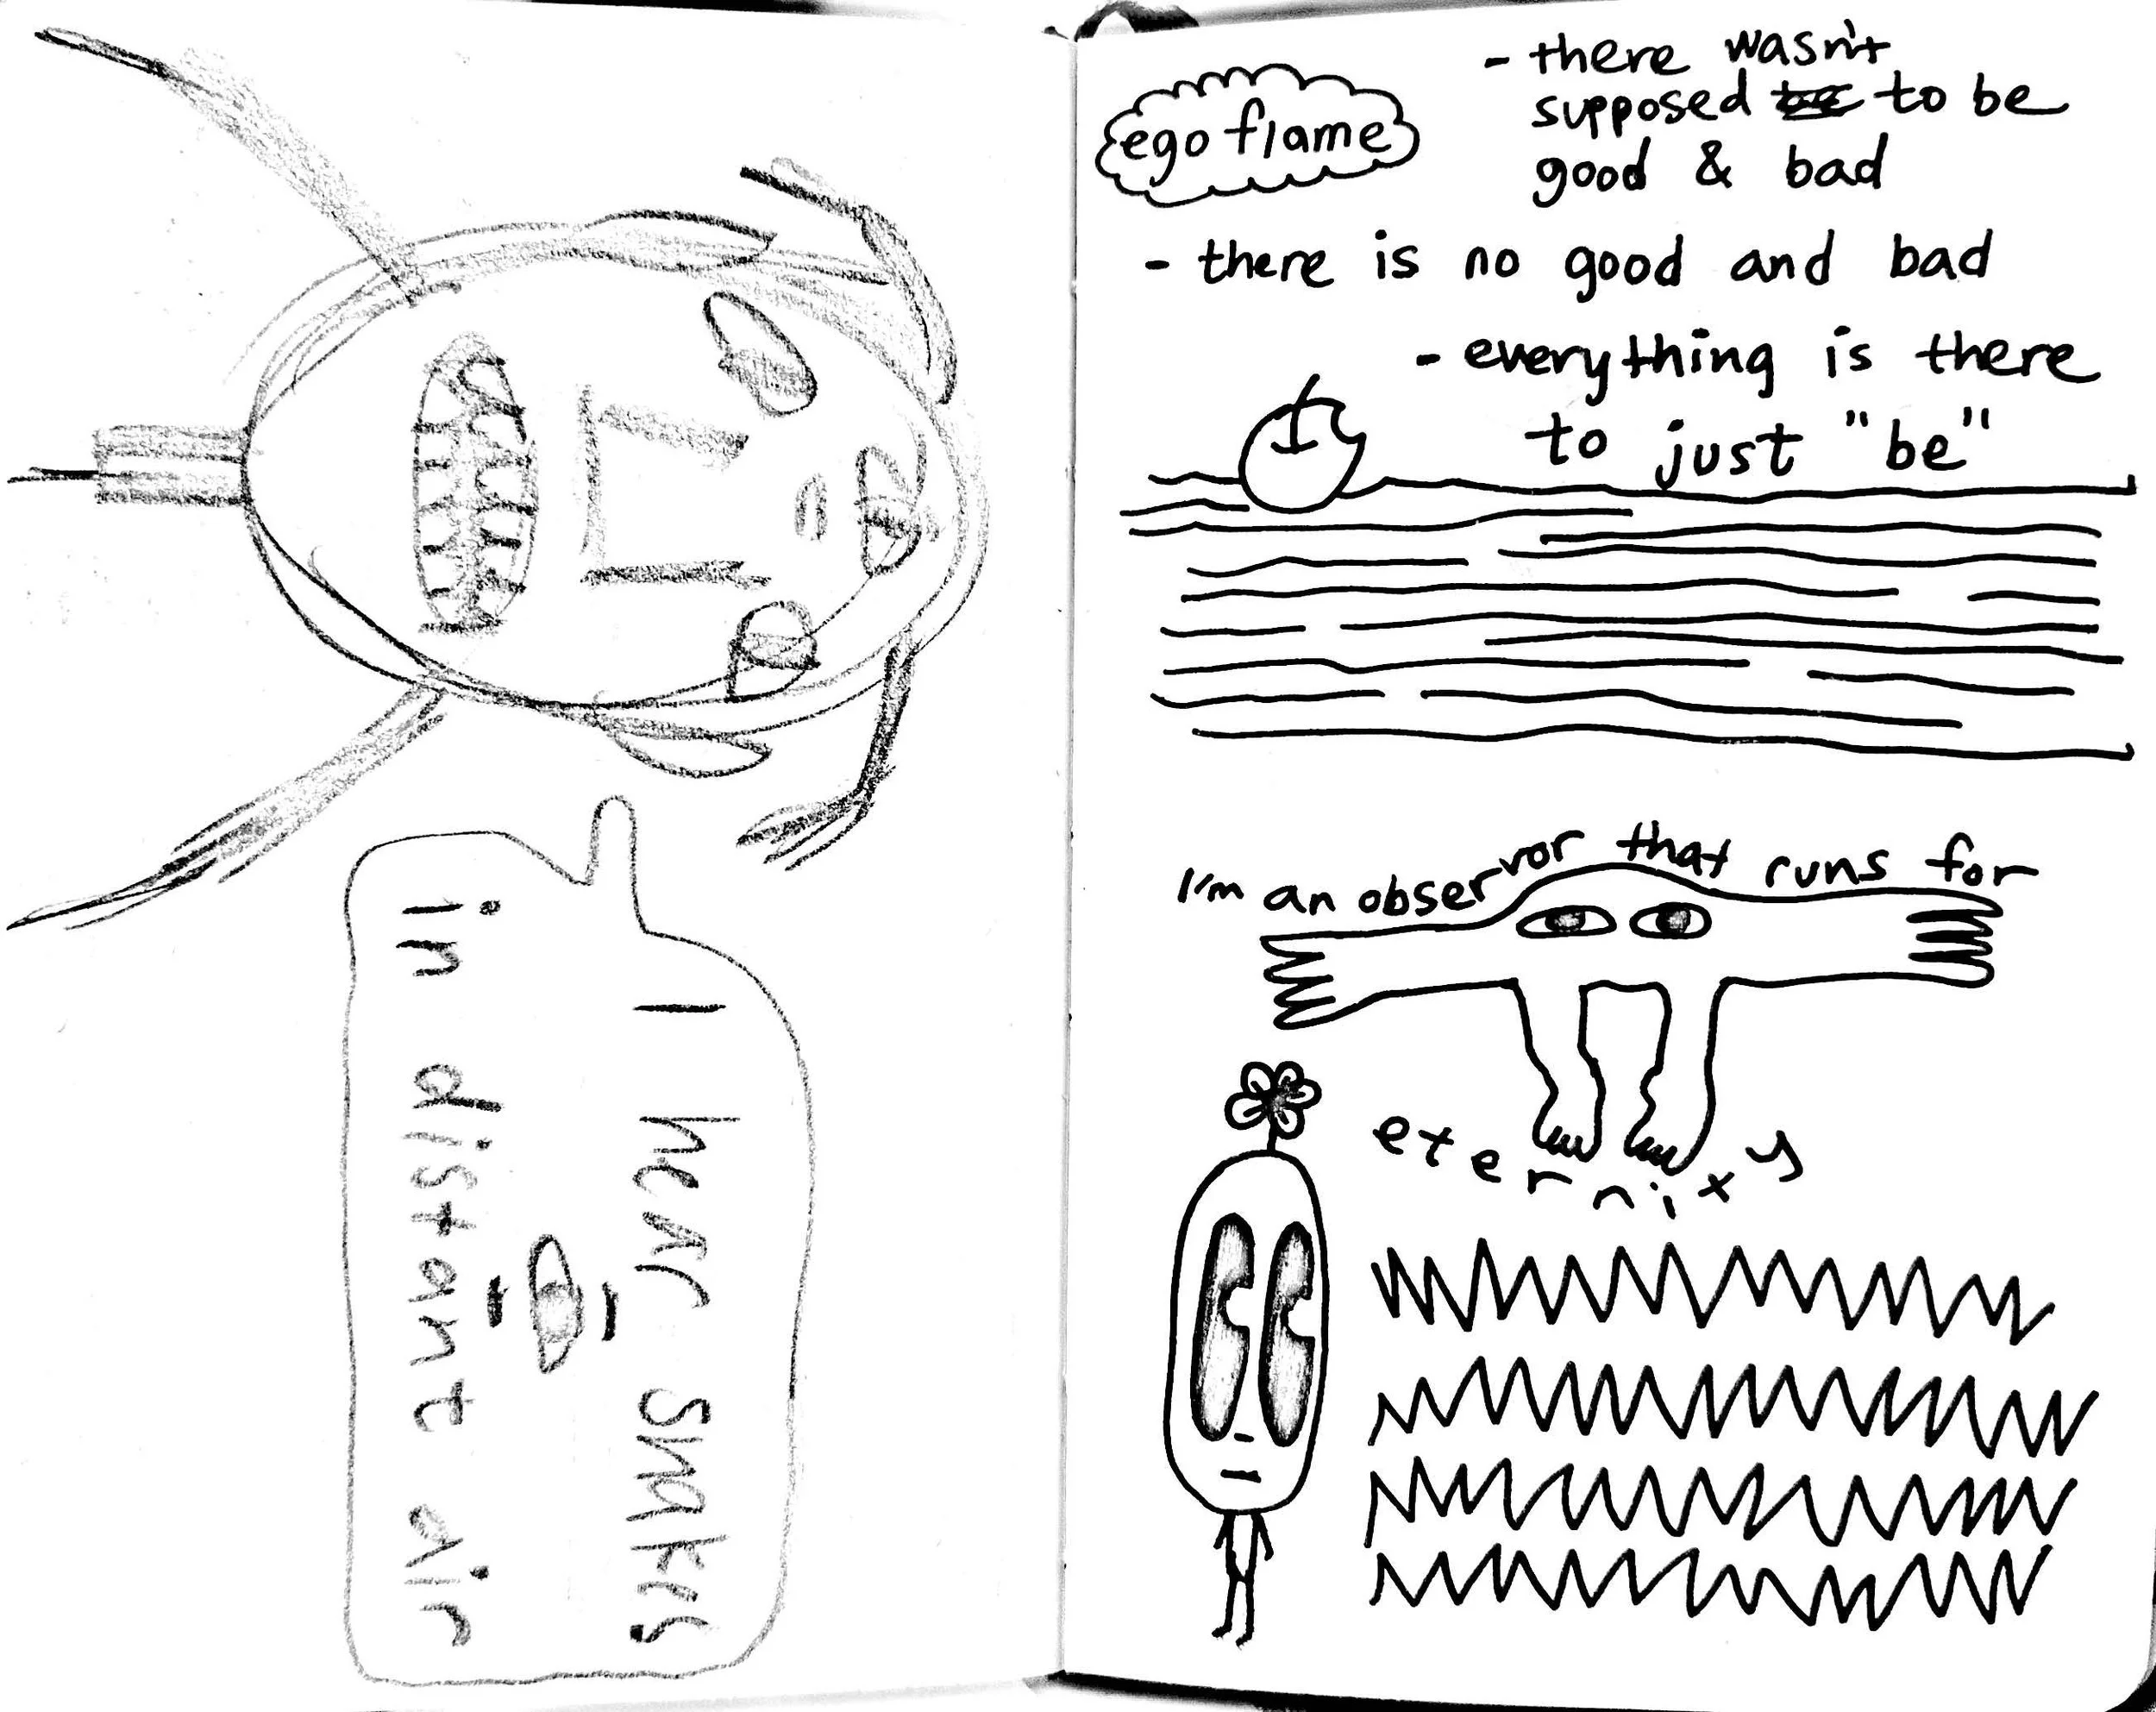 I hear snakes
in distant air
ego flame
- there wasn't
supposed to be
good & bad
- there is no good and bad
- everything is there
to just "be"
I'm an observor that runs for
eternity